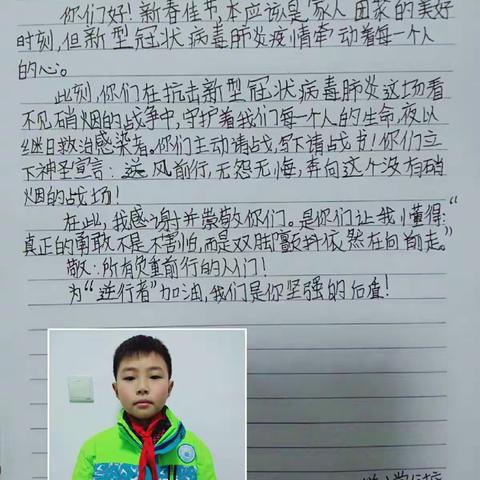 你们好！新春佳节，本应该是家人团聚的美好
时刻，但新型冠状病毒肺炎疫情牵动着每一个人
的心。
此刻，你们在抗击新型冠状病毒肺炎这场看
不见硝烟的战争中，守护着我们每一个人的生命，夜以
继日救治感染者。你们主动请战，写下请战书！你们立
下神圣宣言：逆风前行，无怨无悔，奔向这个没有硝
烟的战场！
在此，我感谢并崇敬你们。是你们让我懂得：“
真正的勇敢不是不害怕，而是双脚颤抖依然在向前走。”
敬：所有负重前行的人们！
为“逆行者”加油，我们是你坚强的后盾！